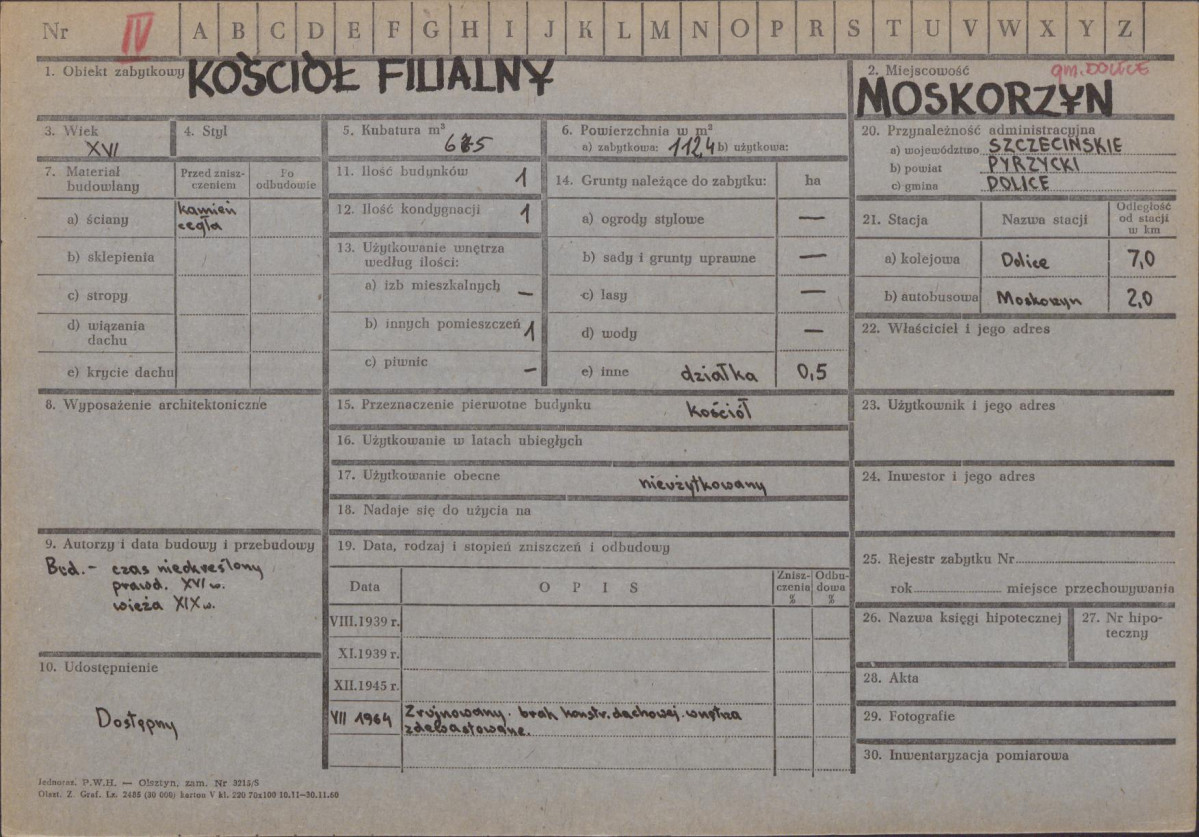 Nr IV A B C D E F G H I J K L M N O P R S T U V W X Y Z
1. Obiekt zabytkowy KOŚCIÓŁ FILIALNY
2. Miejscowość gm. DOLICE
MOSKORZYN
3. Wiek
XVI
4. Styl
5. Kubatura m³
675
6. Powierzchnia w m²
a) zabytkowa: 112,4 b) użytkowa:
7. Materiał budowlany
Przed znisz-
czeniem
Po
odbudowie
a) ściany
kamień
cegła
b) sklepienia
c) stropy
d) wiązania
dachu
e) krycie dachu
8. Wyposażenie architektoniczne
9. Autorzy i data budowy i przebudowy
Bud. - czas nieokreślony
prawd. XVI w.
wieża XIX w.
10. Udostępnienie
Dostępny
11. Ilość budynków 1
12. Ilość kondygnacji 1
13. Użytkowanie wnętrza
według ilości:
a) izb mieszkalnych —
b) innych pomieszczeń 1
c) piwnic —
14. Grunty należące do zabytku: ha
a) ogrody stylowe —
b) sady i grunty uprawne —
c) lasy —
d) wody —
e) inne działka 0,5
15. Przeznaczenie pierwotne budynku kościół
16. Użytkowanie w latach ubiegłych
17. Użytkowanie obecne nieużytkowany
18. Nadaje się do użycia na
19. Data, rodzaj i stopień zniszczeń i odbudowy
Data O P I S
Znisz-
czenia
%
Odbu-
dowa
%
VIII.1939 r.
XI.1939 r.
XII.1945 r.
VII 1964 Zrujnowany. brak konstr. dachowej. wnętrza
zdewastowane.
20. Przynależność administracyjna
a) województwo SZCZECIŃSKIE
b) powiat PYRZYCKI
c) gmina DOLICE
21. Stacja Nazwa stacji
Odległość
od stacji
w km
a) kolejowa Dolice 7,0
b) autobusowa Moskorzyn 2,0
22. Właściciel i jego adres
23. Użytkownik i jego adres
24. Inwestor i jego adres
25. Rejestr zabytku Nr
rok miejsce przechowywania
26. Nazwa księgi hipotecznej
27. Nr hipo-
teczny
28. Akta
29. Fotografie
30. Inwentaryzacja pomiarowa
Jednoraz. P.W.H. — Olsztyn, zam. Nr 3215/S
Olszt. Z. Graf. Lz. 2485 (30 000) karton V kl. 220 70x100 10.11—30.11.60